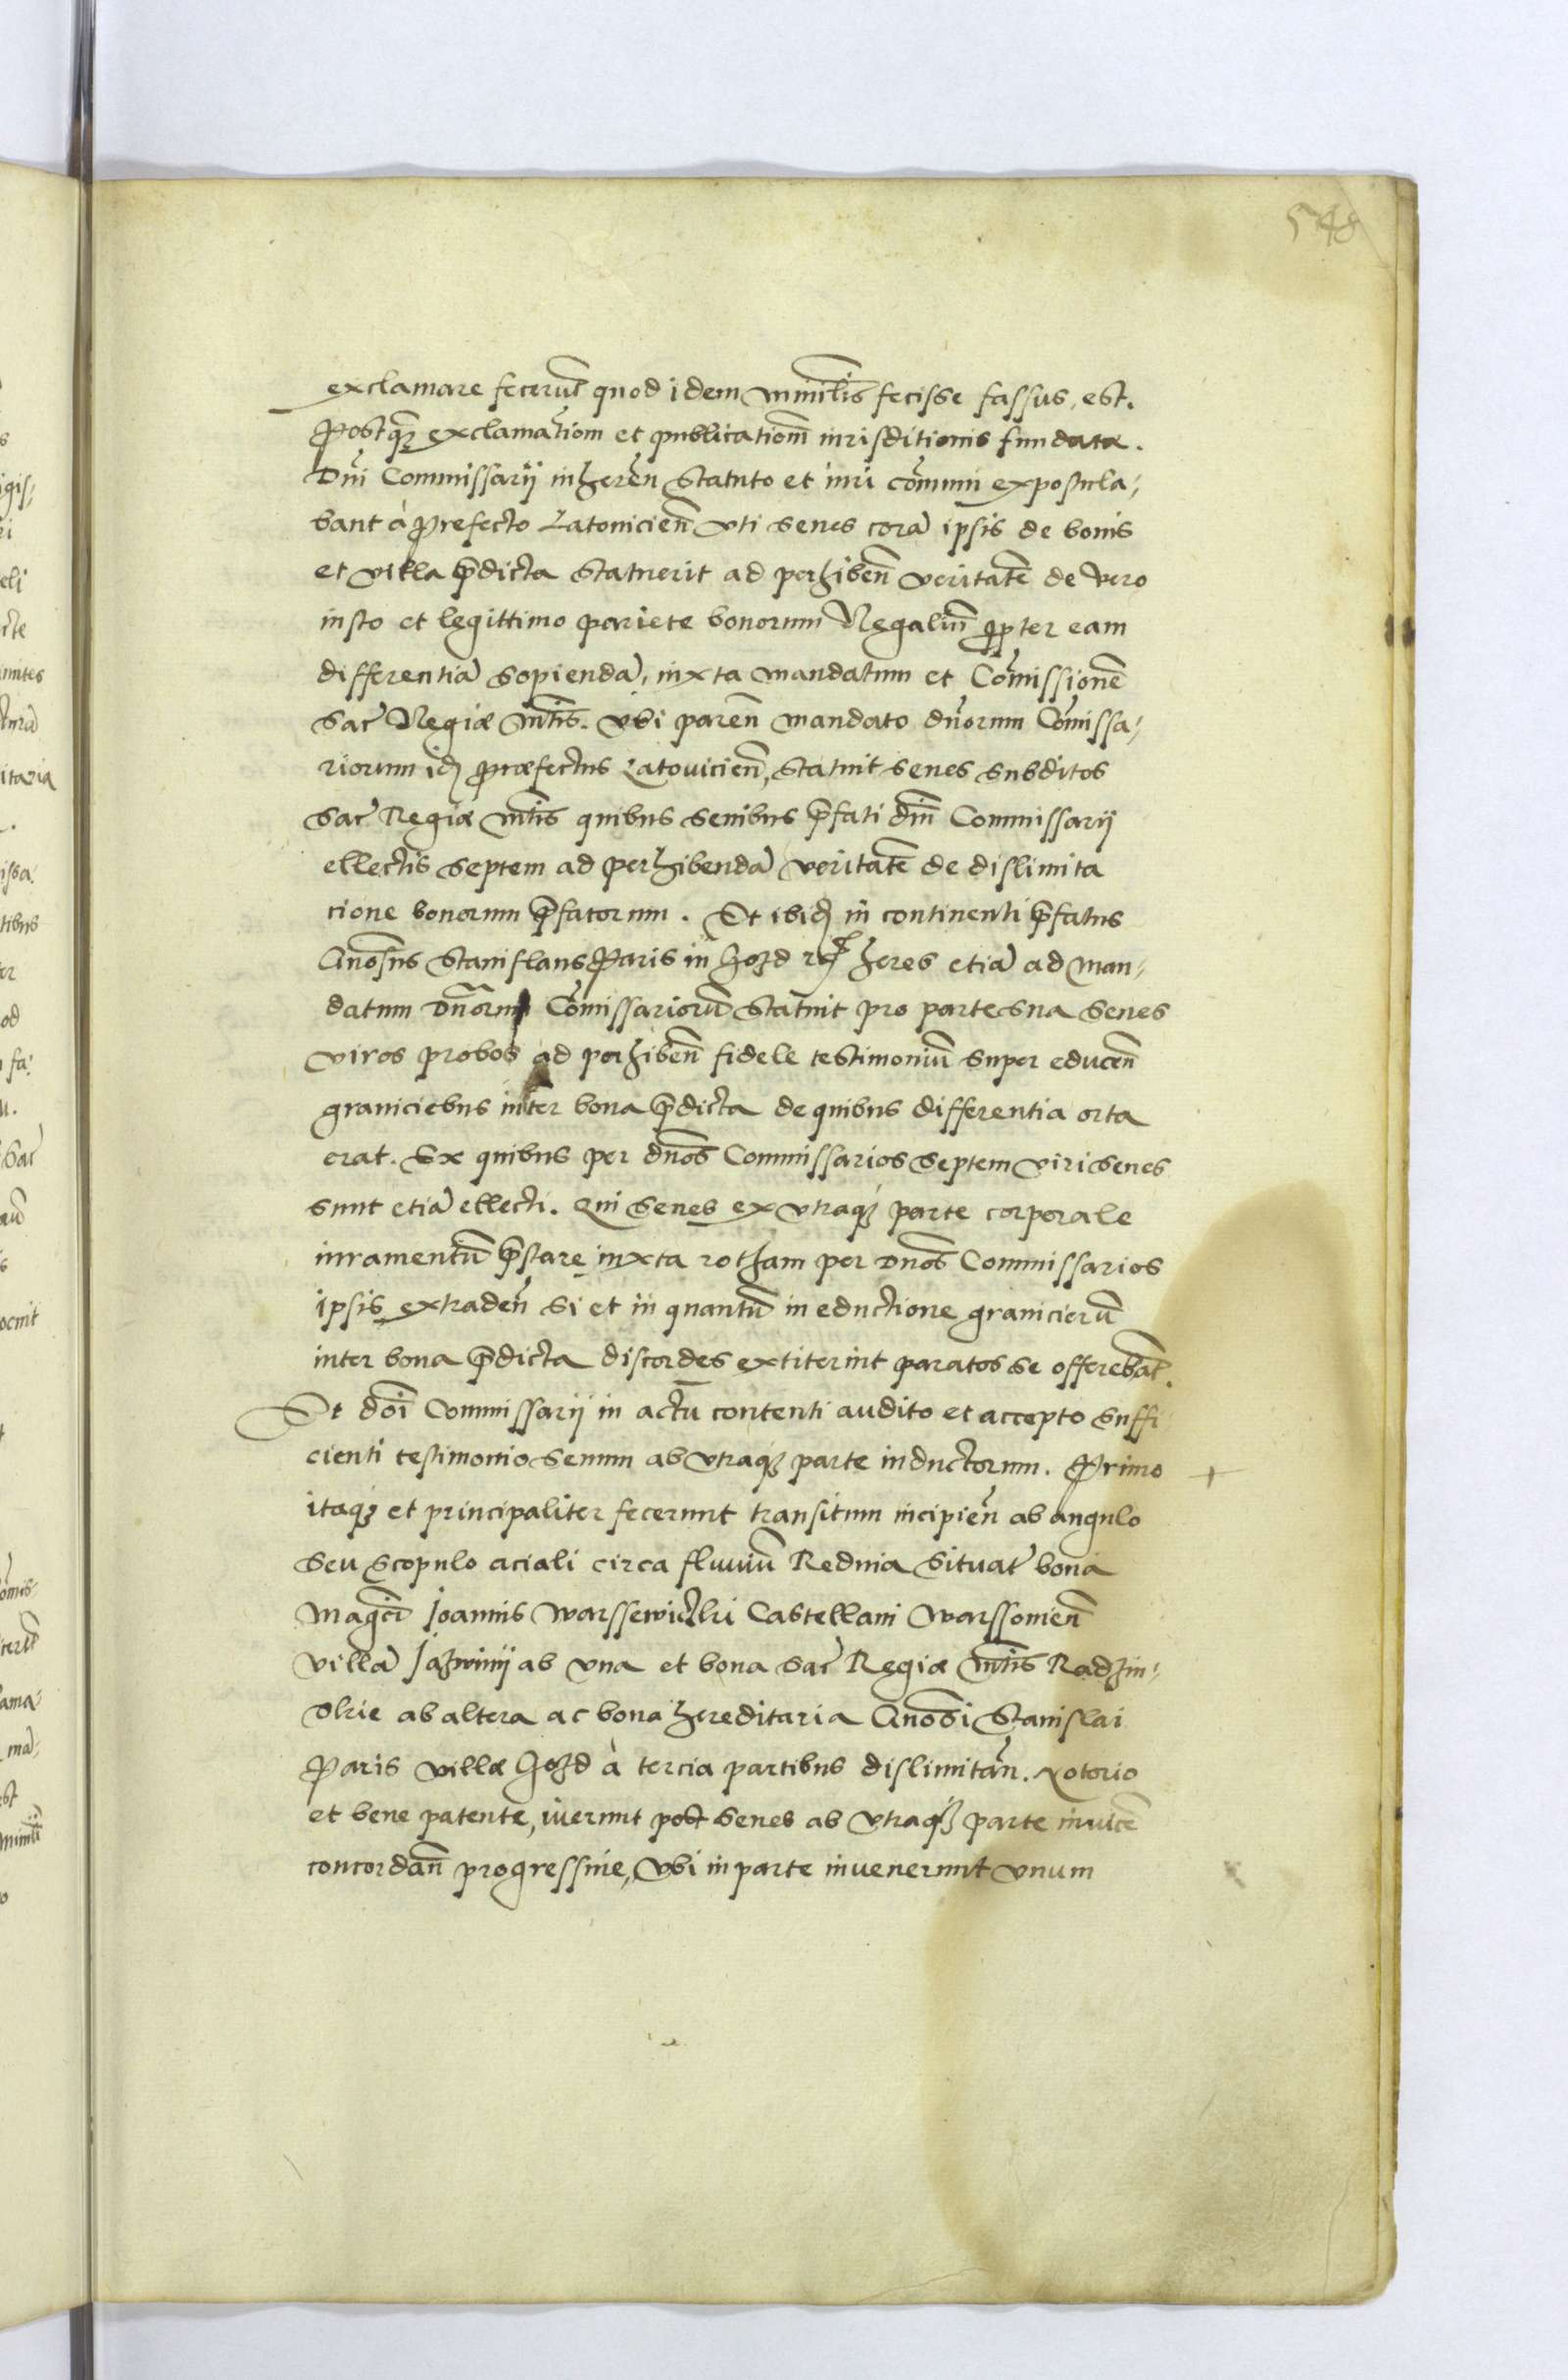 548
exclamare fecerūt quod idem mınılis fecisse fassus, est.
Postq̄ꝫ exclamatiom et publicatiom iurisditionis fundata.
Dñi Commissarÿ inhereñ Statuto et iuri cōmuni expostula,
bant à Prefecto Latouicień vti senes corā ipsis de bonis
et villa p̄dicta statuerit ad perhibeñ veritatē de vero
iusto et legittimo pariete bonorum Regaliū ꝓpter eam
differentiā sopiendā, iuxta mandatum et Cōmissionē
Sac̄ Regiæ Mtis. vbi pareñ mandato dñorum Cōmissa,
riorum idē præfectus Latouicień, statuit senes subditos
Sac̄ Regiæ Mtis quibus senibus p̄fati dñi Commissarÿ
ellectis septem ad perhibendā veritatē de dislimita
cione bonorum p̄fatorum. Et ibidē in continenti p̄fatus
Gnosus Stanislaus Paris in Gozd heres etiā ad man,
datum Dñorum Cōmissariorū statuit pro parte sua senes
viros probos ad perhibeñ fidele testimoniū super educeñ
graniciebus inter bona p̄dicta de quibus differentia orta
erat. Ex quibus per dños Commissarios septem viri senes
sunt etiā ellecti. Qui senes ex vtraqꝫ parte corporale
iuramentū p̄stare iuxta rotham per Dños Commissarios
ipsis extradeñ si et in quantū in eductione granicierū
inter bona p̄dicta discordes extiterint paratos se offerebāt.
Et dōi Commissarÿ in actū contenti audito et accepto suffi
cienti testimonio senum ab vtraqꝫ parte inductorum. Primo +
itaqꝫ et principaliter fecerunt transitum incipień ab angulo
seu scopulo aciali circa fluuiū Rednia situat̄ bona
Magci Joannis Warssewiczki Castellani Warssouień
villā Jazwinÿ ab vna et bona Sac̄ Regiæ Mtis Radzin,
skie ab altera ac bona hereditaria Gnosi Stanislai
Paris villæ Gozd à tercia partibus dislimitāñ. Notorio
et bene patente, iuerunt post senes ab vtraqꝫ parte inuicē
concordāñ progressiue, vbi in parte inuenerunt vnum